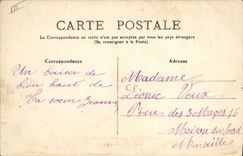 CARTE POSTALE
La Correspondance au recto n'est pas acceptée par tous les pays étrangers
(Se renseigner à la Poste)
Correspondance
Adresse
Un baiser de
bien haut de
ta sœur Jeanne
Madame
Léonie Voux
Rue des 3 Mages 16
Maison du
Marseille